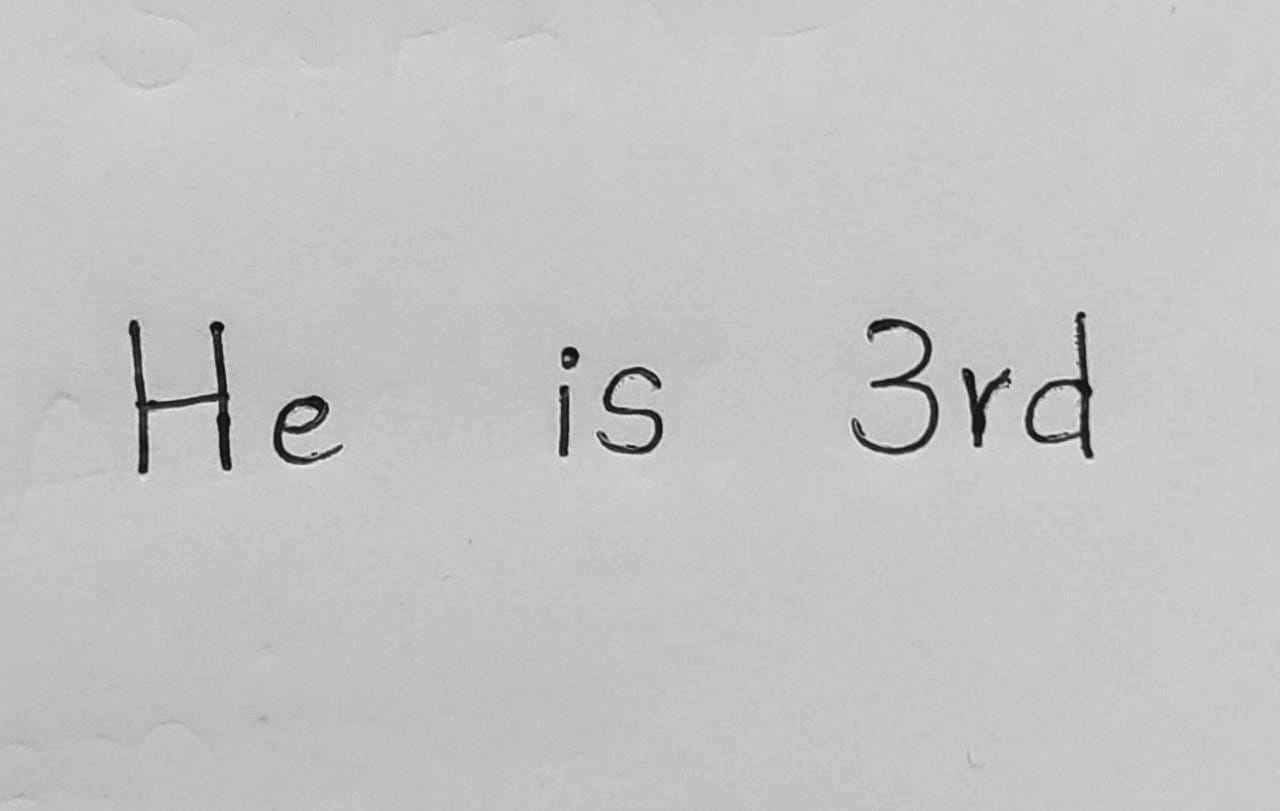 He is 3rd